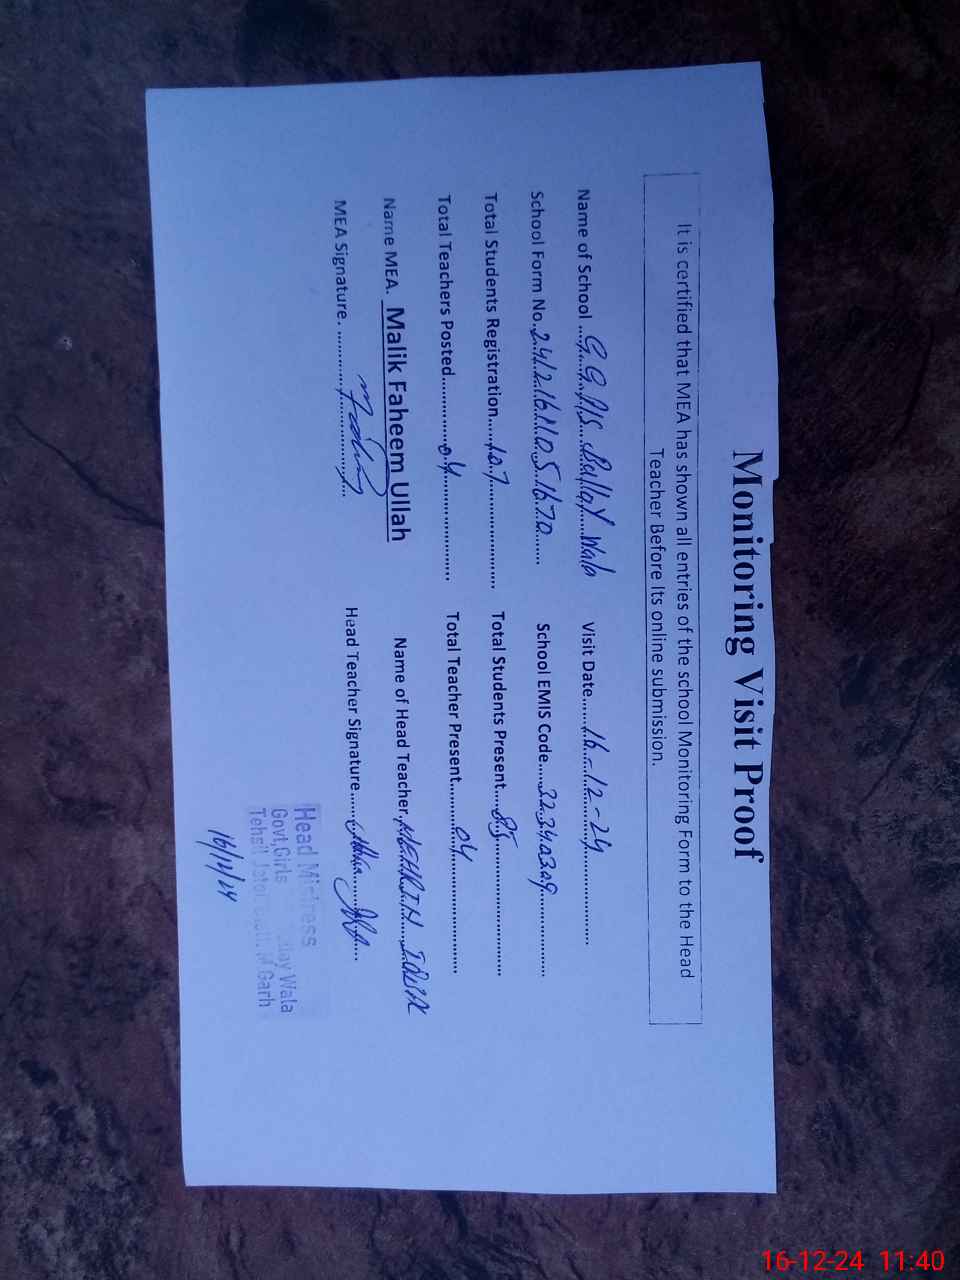 Monitoring Visit Proof
It is certified that MEA has shown all entries of the school Monitoring Form to the Head
Teacher Before Its online submission.
Name of School .... Wala Visit Date....16-12-24
School Form No. School EMIS Code....32340309
Total Students Registration....107 Total Students Present....85
Total Teachers Posted....04 Total Teacher Present....04
Name MEA. Malik Faheem Ullah Name of Head Teacher.
MEA Signature. Head Teacher Signature
Head Mistress
Govt,Girls Wala
Tehsil M Garh
16/12/24
16-12-24 11:40